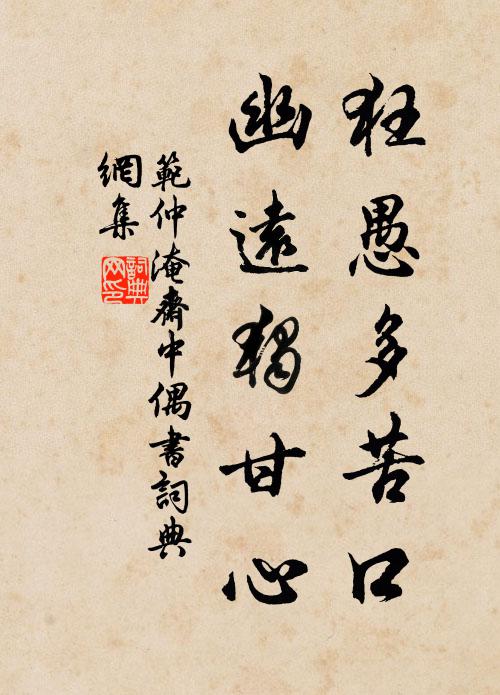 狂愚多苦口
幽遠獨甘心
範仲淹齋中偶書詞典
網集
詞典
网印